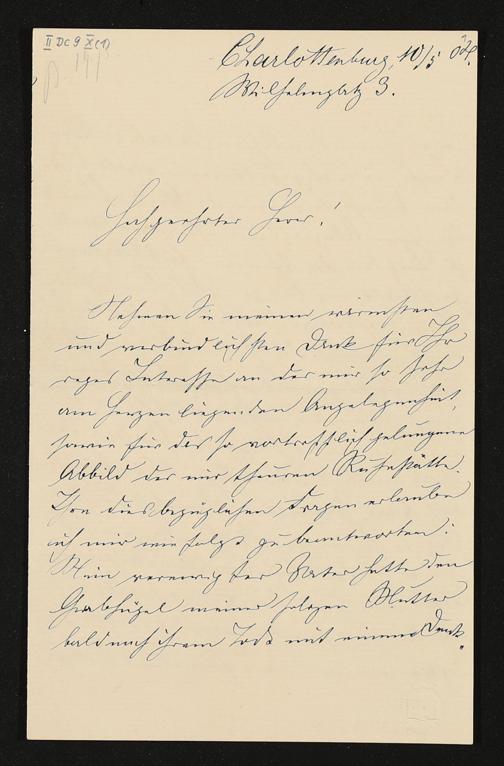 II DC 9 X (1)
Charlottenburg, 10/5 02.
Wilhelmplatz 3.
Hochgeehrter Herr!
Nehmen Sie meinen wärmsten
und verbindlichsten Dank für Ihr
reges Interesse an der mir so sehr
am Herzen liegenden Angelegenheit,
sowie für das so vortrefflich gelungene
Abbild der mir theuren Ruhestätte.
Ihre diesbezüglichen Fragen erlaube
ich mir wie folgt zu beantworten:
Mein verewigter Vater hatte den
Grabhügel meiner seligen Mutter
bald nach ihrem Tode mit einem Denk-